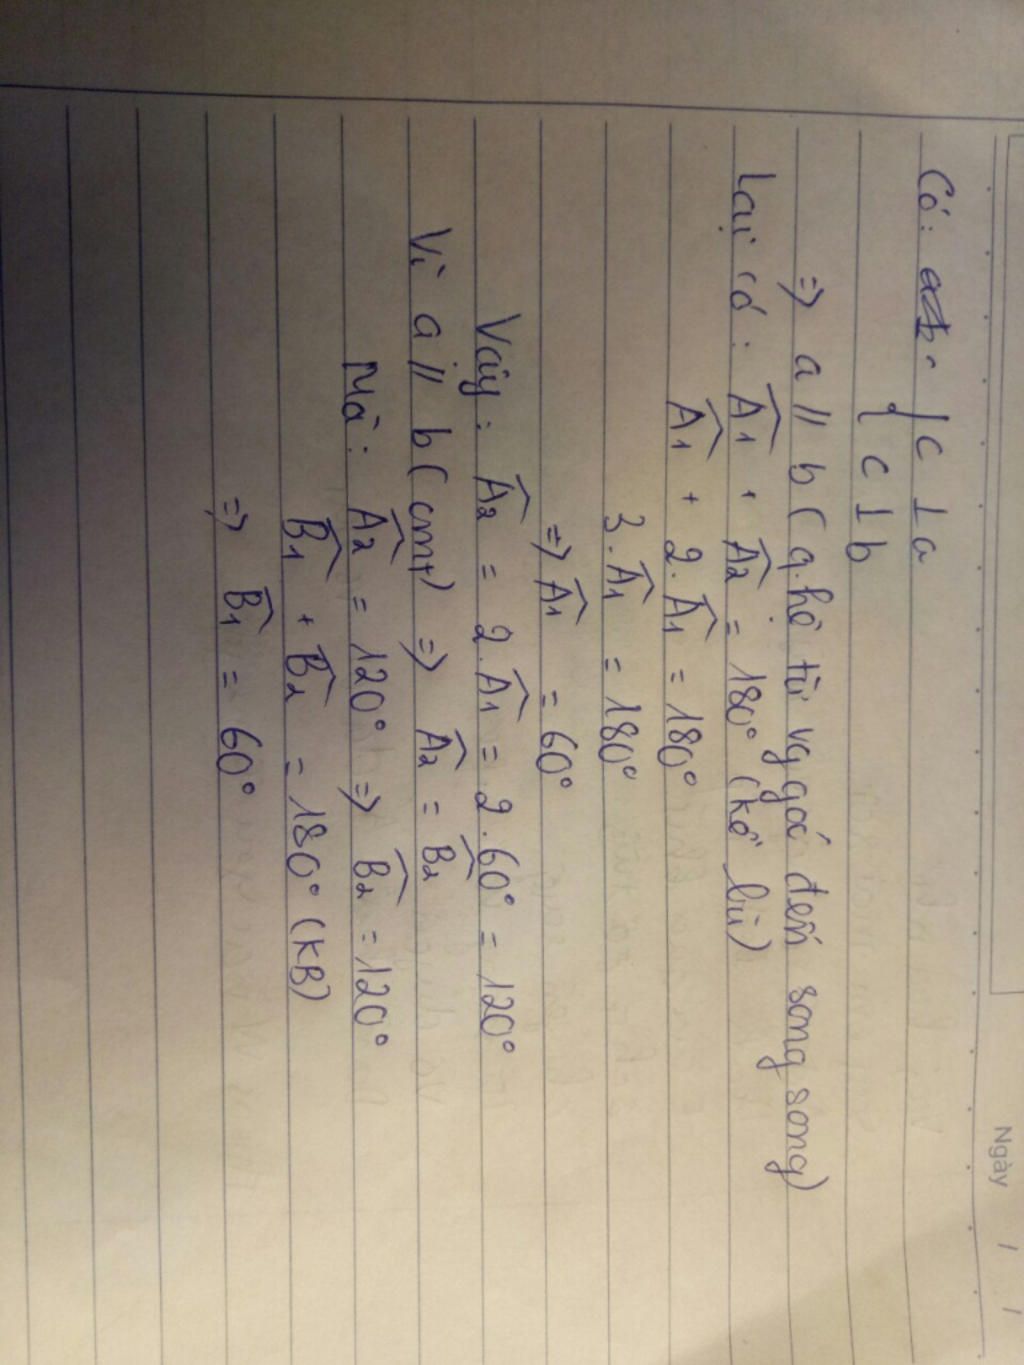 Ngày / /
Có: { c ⊥ a
{ c ⊥ b
=> a // b (q.hệ từ vg góc đến song song)
Lại có: Â1 + Â2 = 180° (kề bù)
Â1 + 2.Â1 = 180°
3.Â1 = 180°
=> Â1 = 60°
Vậy: Â2 = 2.Â1 = 2.60° = 120°
Vì a // b (cmt) => Â2 = B̂2
Mà: Â2 = 120° => B̂2 = 120°
B̂1 + B̂2 = 180° (KB)
=> B̂1 = 60°